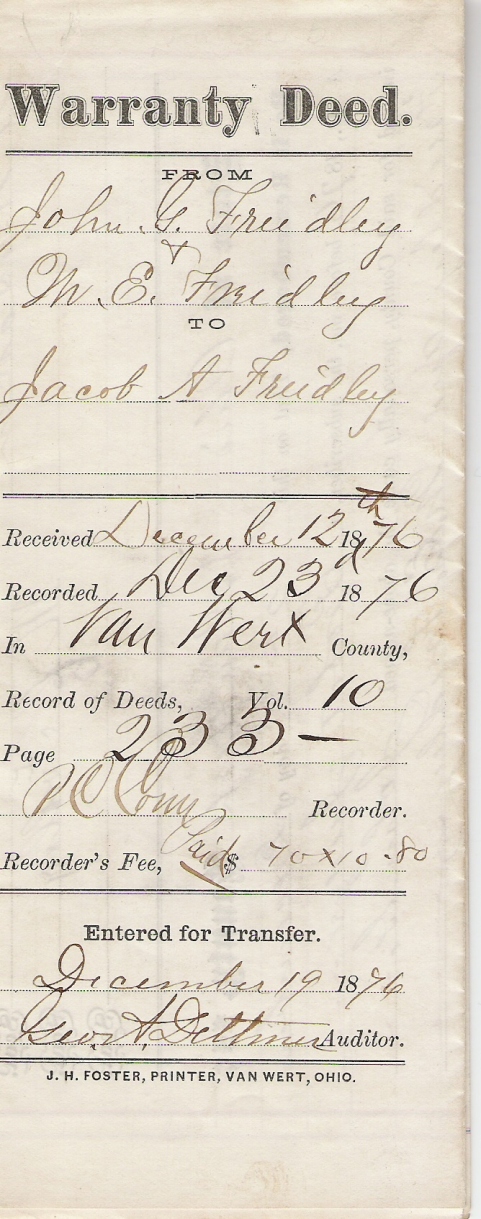 Warranty Deed.
FROM
John G. Freidley
&
M. E. Freidley
TO
Jacob A Freidley
Received December 12th 1876
Recorded Dec 23d 1876
In Van Wert County,
Record of Deeds, Vol. 10
Page 233 —
Recorder.
Recorder's Fee, Paid $ 70x10 .80
Entered for Transfer.
December 19 1876
Geo. A. Dettmer Auditor.
J. H. FOSTER, PRINTER, VAN WERT, OHIO.